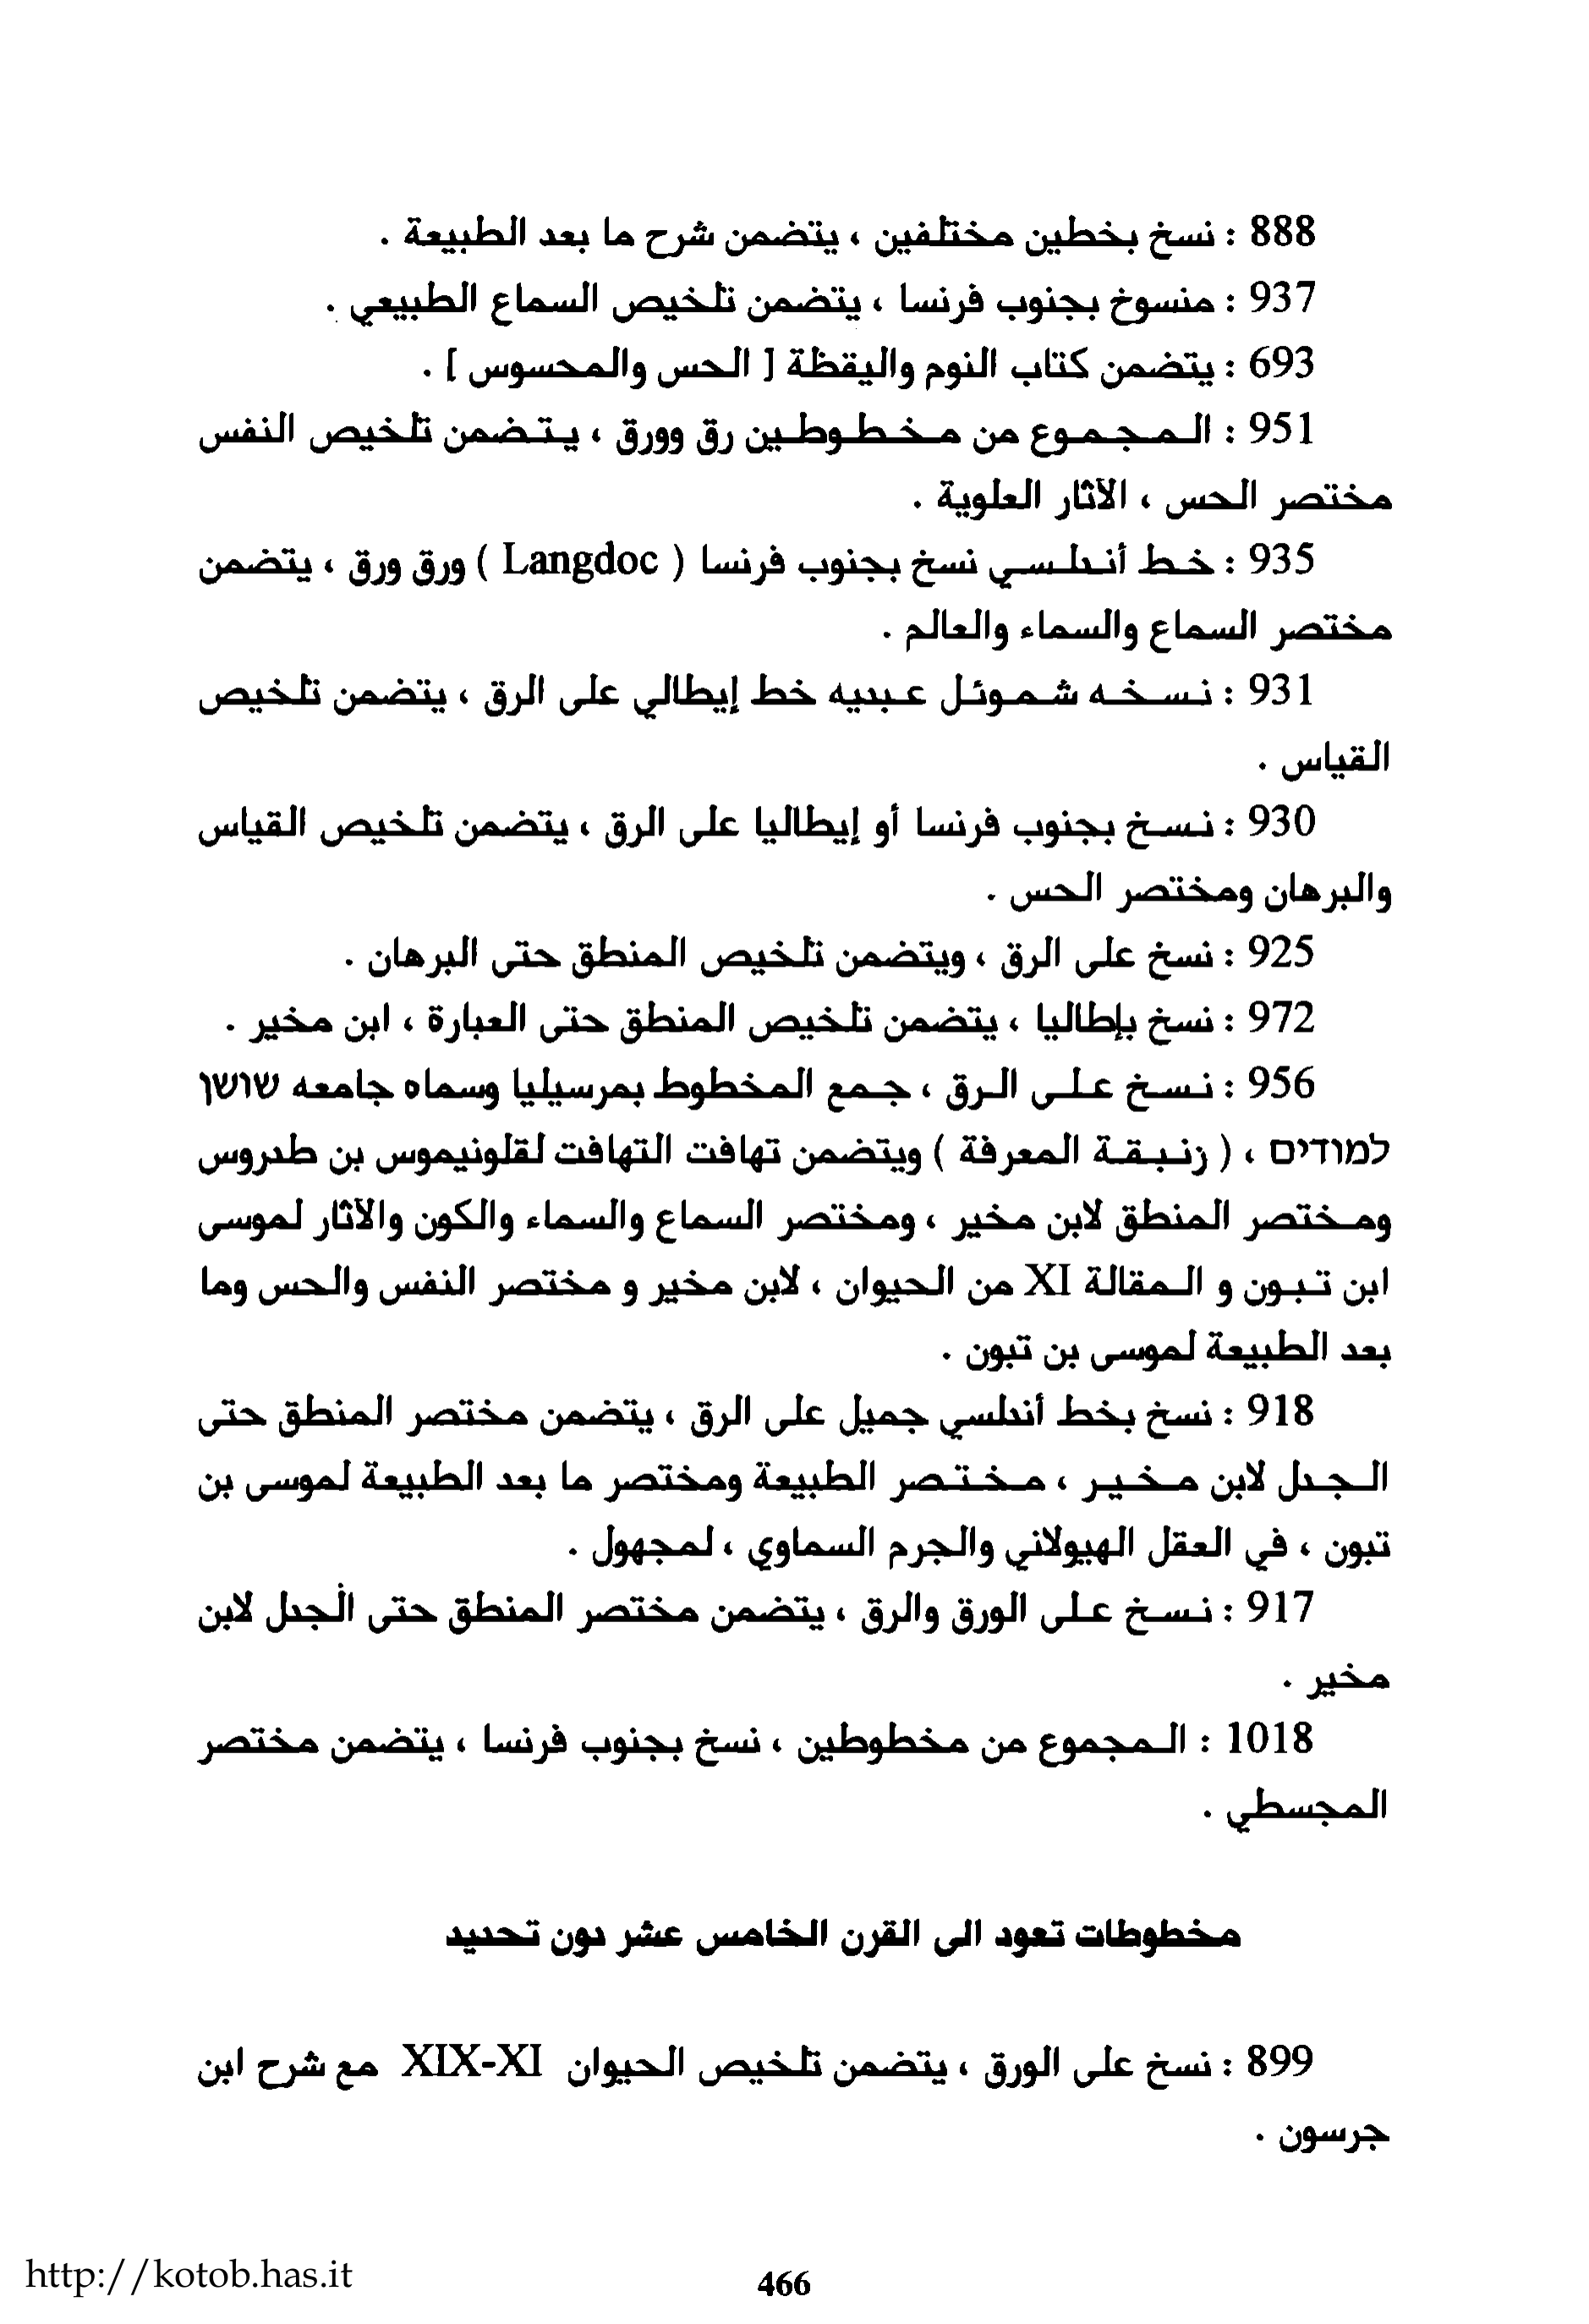 888 : نسخ بخطين مختلفين ، يتضمن شرح ما بعد الطبيعة .
937 : منسوخ بجنوب فرنسا ، يتضمن تلخيص السماع الطبيعي .
693 : يتضمن كتاب النوم واليقظة [ الحس والمحسوس ] .
951 : المجموع من مخطوطين رق وورق ، يتضمن تلخيص النفس
مختصر الحس ، الآثار العلوية .
935 : خط أندلسي نسخ بجنوب فرنسا ( Langdoc ) ورق ورق ، يتضمن
مختصر السماع والسماء والعالم .
931 : نسخه شموئل عبديه خط إيطالي على الرق ، يتضمن تلخيص
القياس .
930 : نسخ بجنوب فرنسا أو إيطاليا على الرق ، يتضمن تلخيص القياس
والبرهان ومختصر الحس .
925 : نسخ على الرق ، ويتضمن تلخيص المنطق حتى البرهان .
972 : نسخ بإطاليا ، يتضمن تلخيص المنطق حتى العبارة ، ابن مخير .
956 : نسخ على الرق ، جمع المخطوط بمرسيليا وسماه جامعه שושן
למודים ، ( زنبقة المعرفة ) ويتضمن تهافت التهافت لقلونيموس بن طدروس
ومختصر المنطق لابن مخير ، ومختصر السماع والسماء والكون والآثار لموسى
ابن تبون و المقالة XI من الحيوان ، لابن مخير و مختصر النفس والحس وما
بعد الطبيعة لموسى بن تبون .
918 : نسخ بخط أندلسي جميل على الرق ، يتضمن مختصر المنطق حتى
الجدل لابن مخير ، مختصر الطبيعة ومختصر ما بعد الطبيعة لموسى بن
تبون ، في العقل الهيولاني والجرم السماوي ، لمجهول .
917 : نسخ على الورق والرق ، يتضمن مختصر المنطق حتى الجدل لابن
مخير .
1018 : المجموع من مخطوطين ، نسخ بجنوب فرنسا ، يتضمن مختصر
المجسطي .
مخطوطات تعود الى القرن الخامس عشر دون تحديد
899 : نسخ على الورق ، يتضمن تلخيص الحيوان XIX-XI مع شرح ابن
جرسون .
http://kotob.has.it
466